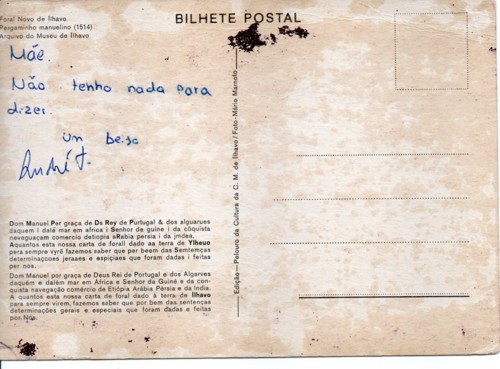 Foral Novo de Ílhavo
Pergaminho manuelino (1514)
Arquivo do Museu de Ílhavo
BILHETE POSTAL
Mãe.
Não tenho nada para
dizer.
Um beijo
André F.
Dom Manuel Per graça de Ds Rey de Purtugal & dos alguarues
daquem i dalé mar em africa i Senhor de guine i da cõquista
naveguaçam comercio detiopia aRabia persia i da jmdea.
Aquantos esta nossa carta de forall dado aa terra de Yliauo
pera sempre vyrẽ fazemos saber que por beem das Semtemças
determinaçoees jeraaes e espiçiaes que foram dadas i feitas
per nós.
Dom Manuel por graça de Deus Rei de Portugal e dos Algarves
daquém e dalém mar em África e Senhor da Guiné e da con-
quista navegação comércio de Etiópia Arábia Pérsia e da Índia.
A quantos esta nossa carta de foral dado à terra de Ílhavo
para sempre virem, fazemos saber que por bem das sentenças
determinações gerais e especiais que foram dadas e feitas
por Nós.
Edição—Pelouro da Cultura da C. M. de Ílhavo/Foto-Mário Marnoto